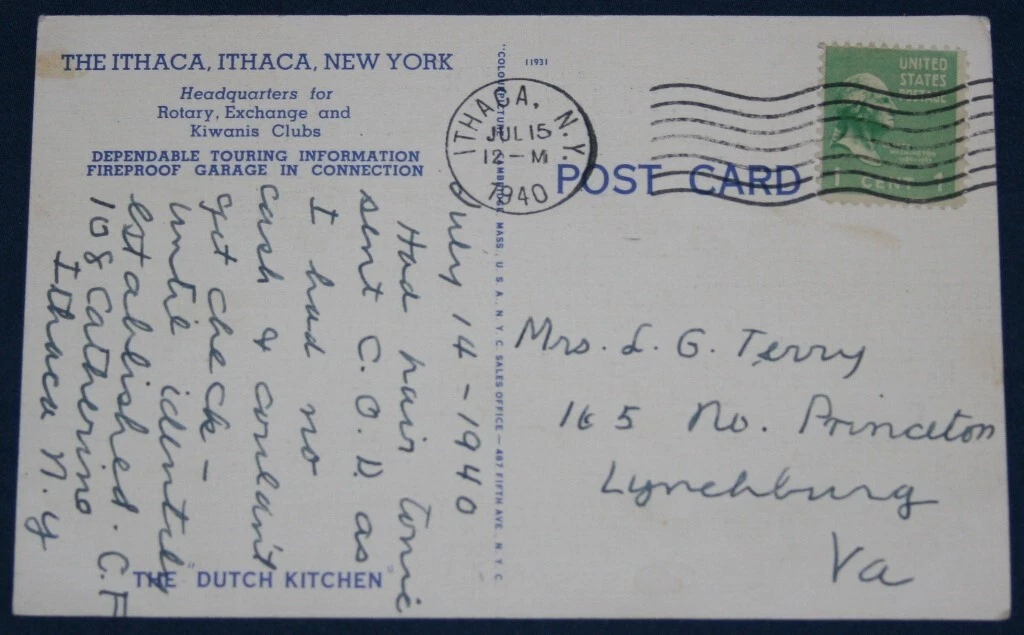 THE ITHACA, ITHACA, NEW YORK
Headquarters for
Rotary, Exchange and
Kiwanis Clubs
DEPENDABLE TOURING INFORMATION
FIREPROOF GARAGE IN CONNECTION
July 14 - 1940
Had hair tonic
sent C.O.D. as
I had no
cash & couldn't
get check -
until identity
established. C.F
108 Catherine
Ithaca N.Y
THE "DUTCH KITCHEN"
11931
MASS., U.S.A. N.Y.C. SALES OFFICE - 487 FIFTH AVE. N.Y.C
ITHACA, N.Y.
JUL 15
12 - M
1940
POST CARD
UNITED
STATES
POSTAGE
1 CENT 1
Mrs. L. G. Terry
165 No. Princeton
Lynchburg
Va